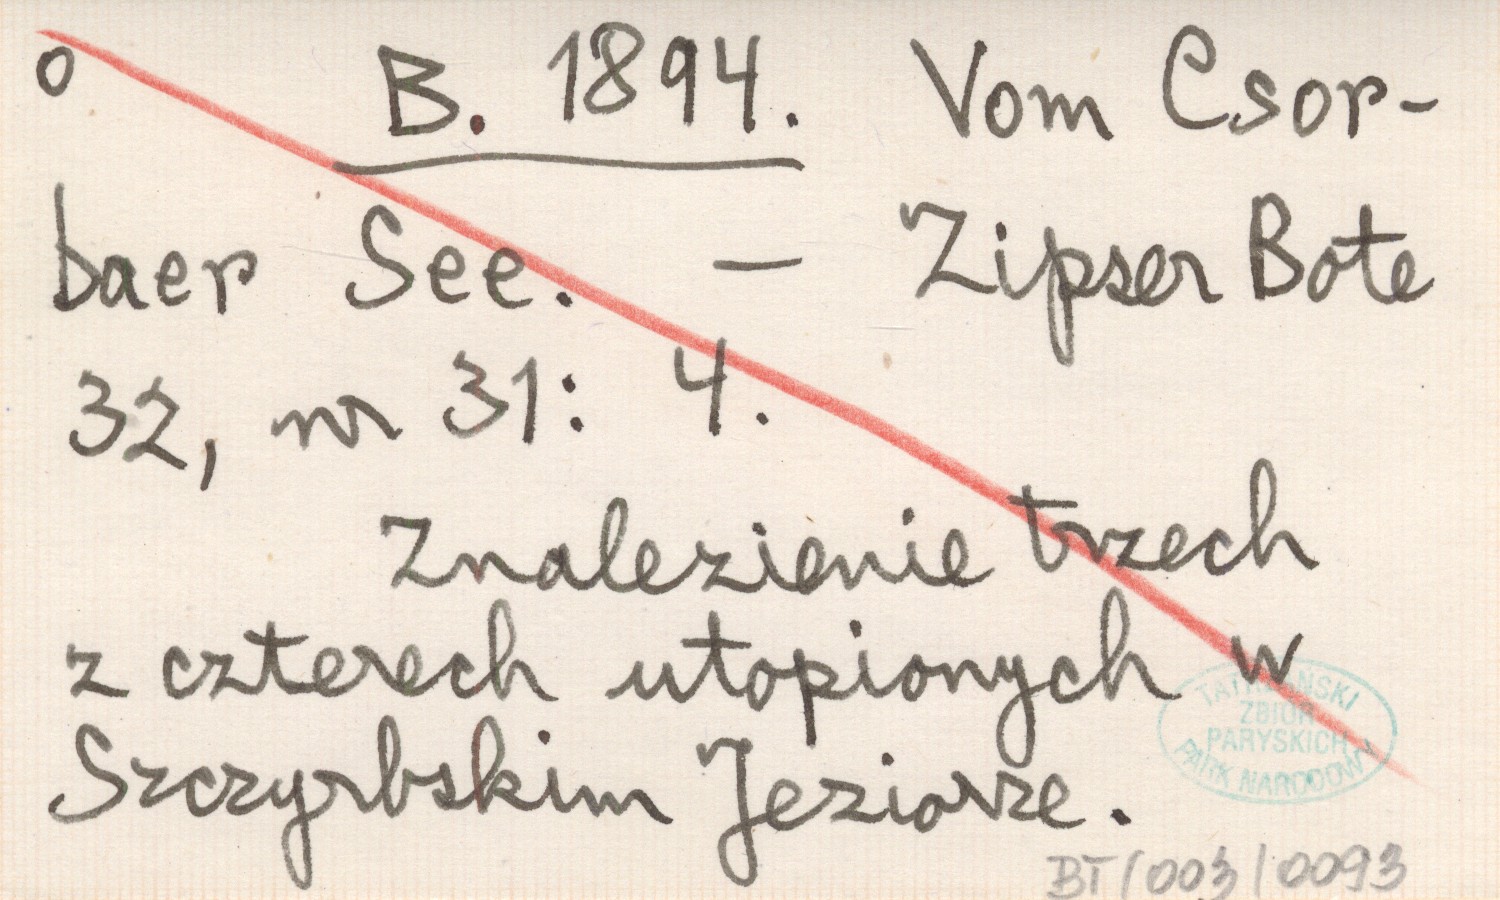 o B. 1894. Vom Csor-
baer See. — Zipser Bote
32, nr 31: 4.
Znalezienie trzech
z czterech utopionych w
Szczyrbskim Jeziorze.
TATRZAŃSKI
ZBIÓR
PARYSKICH
PARK NARODOWY
BT/003/0093